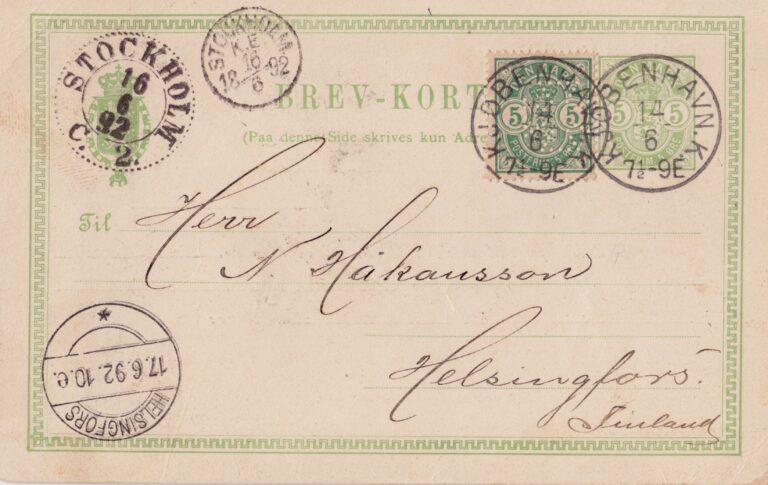 STOCKHOLM
16
6
92
C. 2.
STOCKHOLM
K.E
16
18 92
6
BREV-KORT
(Paa denne Side skrives kun Adre
KJØBENHAVN.K.
14
6
7½-9E
KJØBENHAVN.K.
14
6
7½-9E
5 5
5 5
Til
Herr
N. Håkansson
Helsingfors.
Finland
*
17.6.92.10.e.
HELSINGFORS